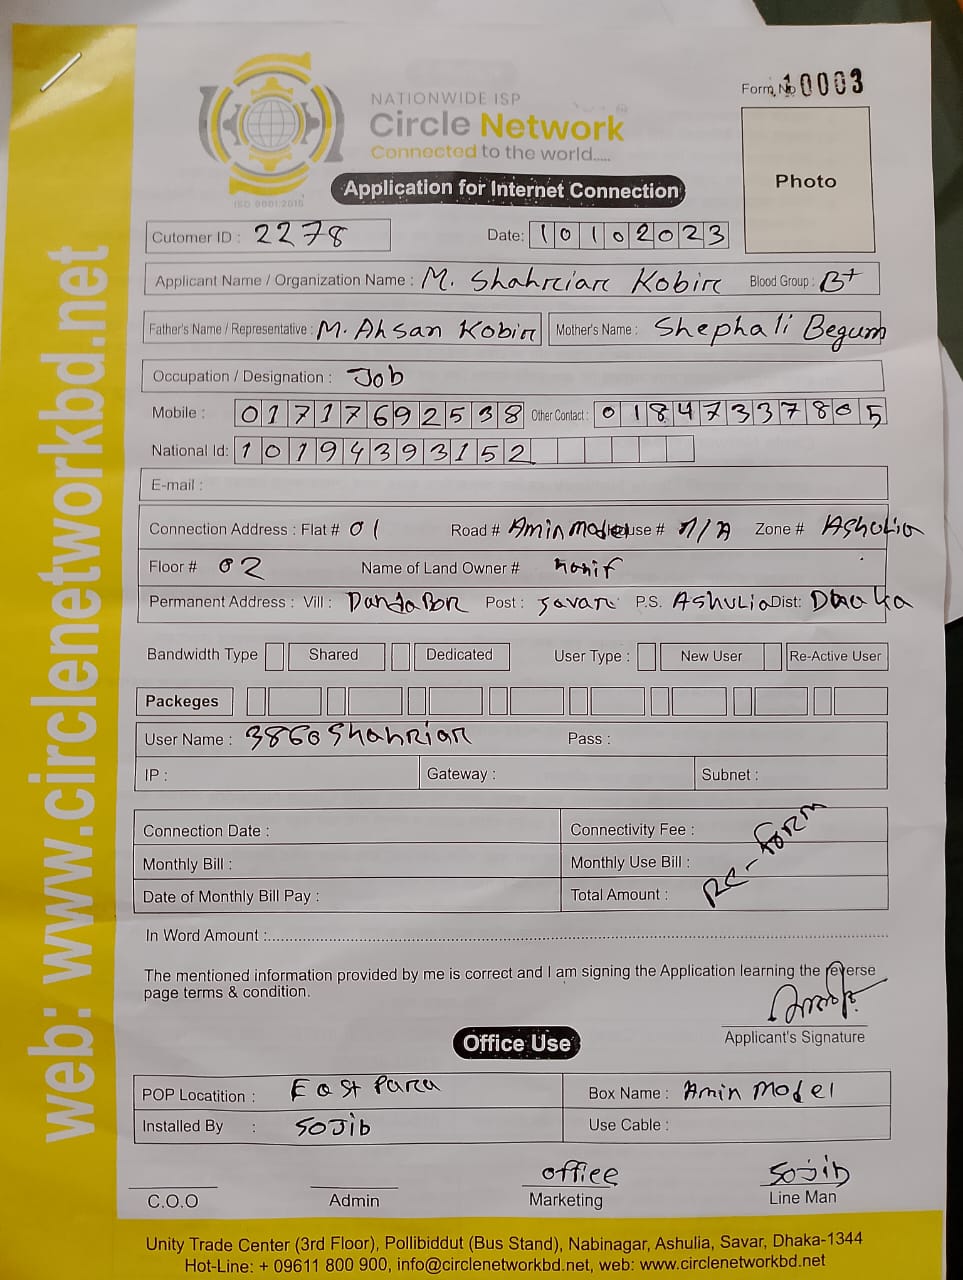 web: www.circlenetworkbd.net
Form No 10003
NATIONWIDE ISP
Circle Network
Connected to the world.....
ISO 9001:2015
Application for Internet Connection
Photo
Cutomer ID : 2278 Date: 10102023
Applicant Name / Organization Name : M. Shahrciarc Kobirc Blood Group : B+
Father's Name / Representative : M. Ahsan Kobirc Mother's Name : Shephali Begum
Occupation / Designation : Job
Mobile : 01717692538 Other Contact : 01847337805
National Id: 10194393152
E-mail :
Connection Address : Flat # 01 Road # Amin Model House # N/A Zone # Ashulia
Floor # 02 Name of Land Owner # Hanif
Permanent Address : Vill : Post : Savar P.S. Ashulia Dist: Dhaka
Bandwidth Type Shared Dedicated User Type : New User Re-Active User
Packeges
User Name : 3860Shahriar Pass :
IP : Gateway : Subnet :
Connection Date : Connectivity Fee :
Monthly Bill : Monthly Use Bill :
Date of Monthly Bill Pay : Total Amount :
Re-form
In Word Amount :
The mentioned information provided by me is correct and I am signing the Application learning the reverse
page terms & condition.
Applicant's Signature
Office Use
POP Locatition : East Para Box Name : Amin Model
Installed By : Sojib Use Cable :
office Sojib
C.O.O Admin Marketing Line Man
Unity Trade Center (3rd Floor), Pollibiddut (Bus Stand), Nabinagar, Ashulia, Savar, Dhaka-1344
Hot-Line: + 09611 800 900, info@circlenetworkbd.net, web: www.circlenetworkbd.net